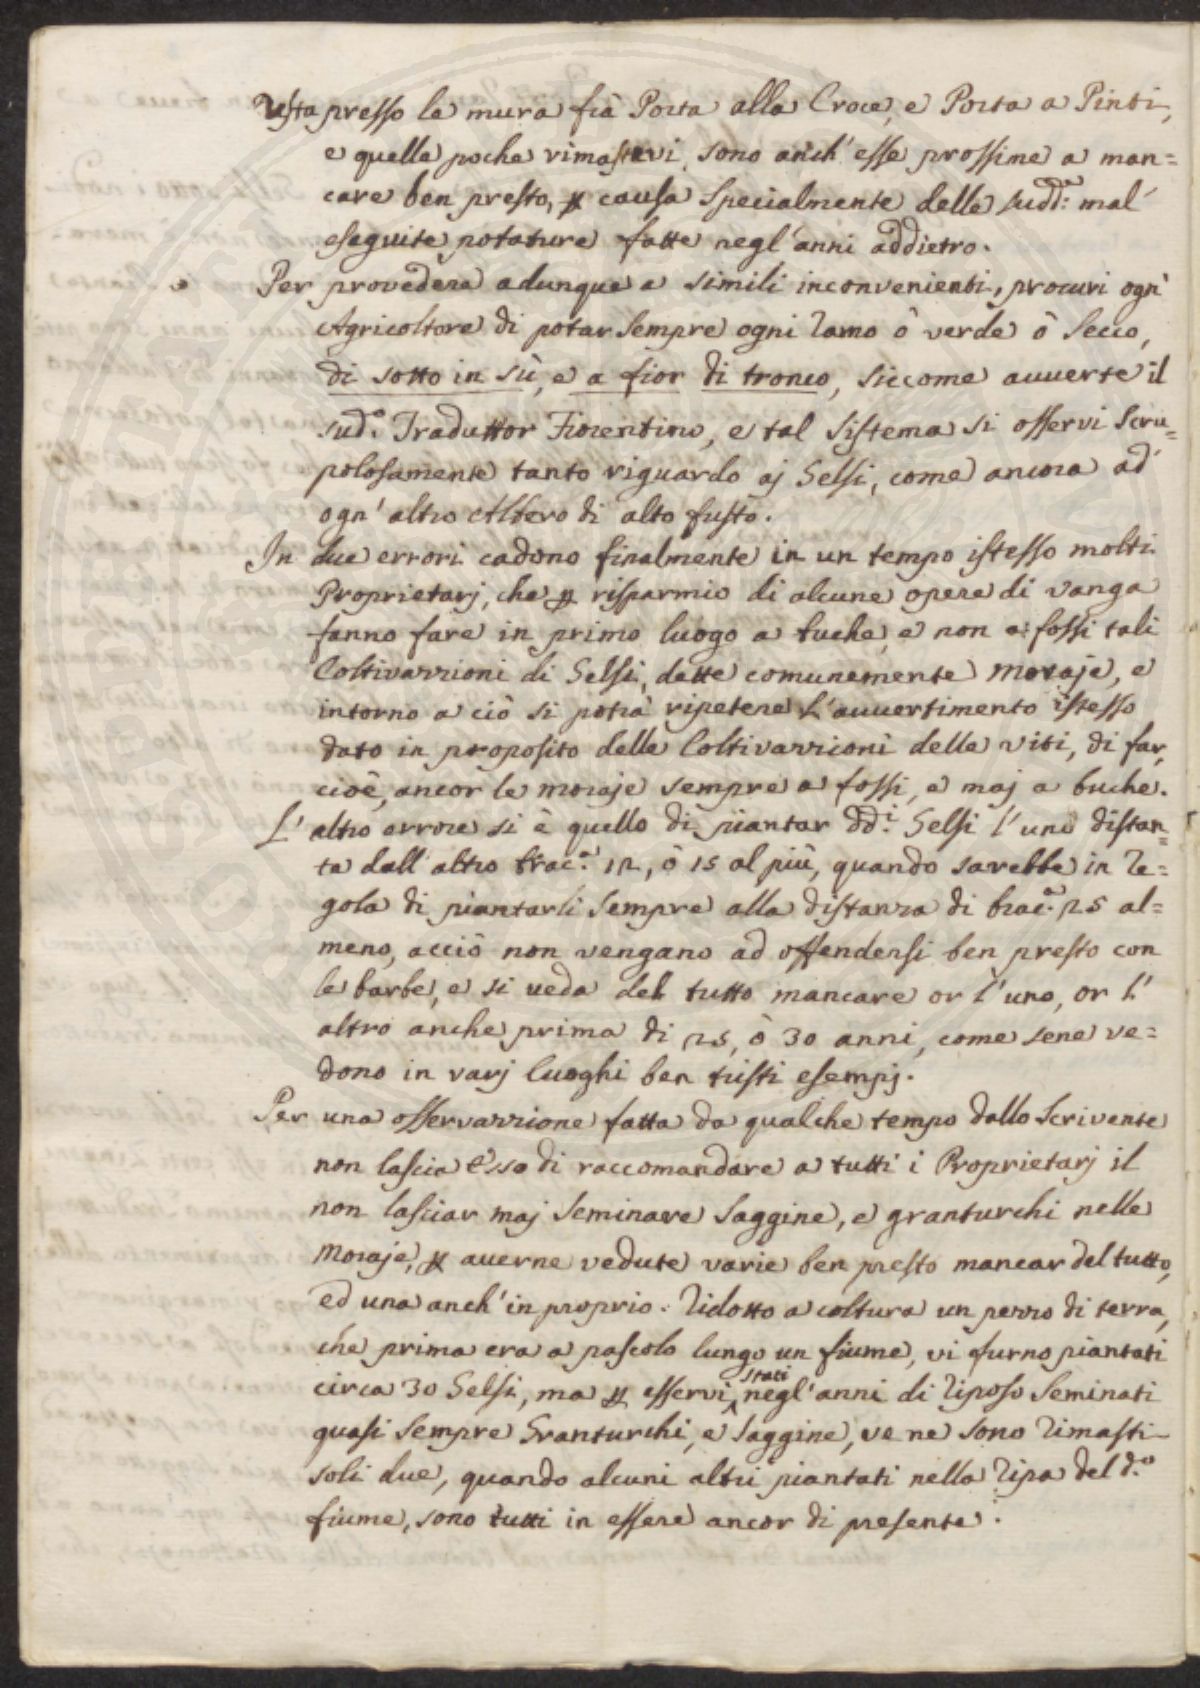 Usta presso le mura frà Porta alla Croce, e Porta a Pinti,
e quelle poche rimastevi, sono anch' esse prossime a man=
care ben presto, ꝑ causa specialmente delle sudd.e mal'
eseguite potature fatte negl' anni addietro.
Per provedere adunque a simili inconvenienti, procuri ogn'
Agricoltore di potar sempre ogni ramo ò verde ò secco,
di sotto in sù, e a fior di tronco, siccome avverte il
sud.o Traduttor Fiorentino, e tal sistema si osservi scru=
polosamente tanto riguardo aj Gelsi, come ancora ad
ogn' altro Albero di alto fusto.
In due errori cadono finalmente in un tempo istesso molti
Proprietarj, che ꝑ risparmio di alcune opere di vanga
fanno fare in primo luogo a buche, e non a fossi tali
Coltivazzioni di Gelsi, dette comunemente Moraje, e
intorno a ciò si potrà ripetere l'avvertimento istesso
dato in proposito delle Coltivazzioni delle viti, di far,
cioè, ancor le moraje sempre a fossi, e maj a buche.
L' altro errore si è quello di piantar dd.i Gelsi l'uno distan=
te dall' altro brac.a 12, ò 15 al più, quando sarebbe in re=
gola di piantarli sempre alla distanza di brac.a 25 al=
meno, acciò non vengano ad offendersi ben presto con
le barbe, e si veda del tutto mancare or l'uno, or l'
altro anche prima di 25, ò 30 anni, come sene ve=
dono in varj luoghi ben tristi esempj.
Per una osservazzione fatta da qualche tempo dallo Scrivente
non lascia esso di raccomandare a tutti i Proprietarj il
non lasciar maj seminare saggine, e granturchi nelle
Moraje, ꝑ averne vedute varie ben presto mancar del tutto,
ed una anch' in proprio. Ridotto a coltura un pezzo di terra,
che prima era a pascolo lungo un fiume, vi furno piantati
circa 30 Gelsi, ma ꝑ esservi stati negl' anni di riposo seminati
quasi sempre Granturchi, e saggine, ve ne sono rimasti
soli due, quando alcuni altri piantati nella ripa del d.o
fiume, sono tutti in essere ancor di presente.